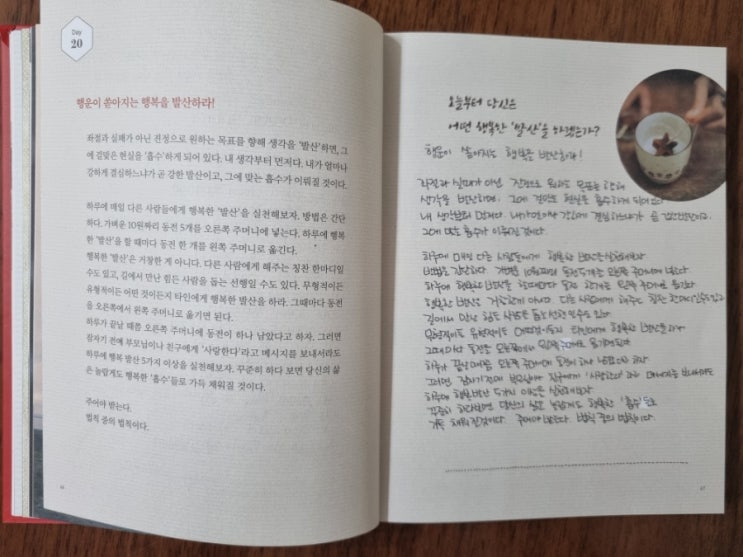 Day
20
행운이 쏟아지는 행복을 발산하라!
좌절과 실패가 아닌 진정으로 원하는 목표를 향해 생각을 '발산'하면, 그
에 걸맞은 현실을 '흡수'하게 되어 있다. 내 생각부터 먼저다. 내가 얼마나
강하게 결심하느냐가 곧 강한 발산이고, 그에 맞는 흡수가 이뤄질 것이다.
하루에 매일 다른 사람들에게 행복한 '발산'을 실천해보자. 방법은 간단
하다. 가벼운 10원짜리 동전 5개를 오른쪽 주머니에 넣는다. 하루에 행복
한 '발산'을 할 때마다 동전 한 개를 왼쪽 주머니로 옮긴다.
행복한 '발산'은 거창한 게 아니다. 다른 사람에게 해주는 칭찬 한마디일
수도 있고, 길에서 만난 힘든 사람을 돕는 선행일 수도 있다. 무형적이든
유형적이든 어떤 것이든지 타인에게 행복한 발산을 하라. 그때마다 동전
을 오른쪽에서 왼쪽 주머니로 옮기면 된다.
하루가 끝날 때쯤 오른쪽 주머니에 동전이 하나 남았다고 하자. 그러면
잠자기 전에 부모님이나 친구에게 '사랑한다'라고 메시지를 보내서라도
하루에 행복 발산 5가지 이상을 실천해보자. 꾸준히 하다 보면 당신의 삶
은 놀랍게도 행복한 '흡수'들로 가득 채워질 것이다.
주어야 받는다.
법칙 중의 법칙이다.
46
오늘부터 당신은
어떤 행복한 '발산'을 하겠는가?
행운이 쏟아지는 행복을 발산하라!
좌절과 실패가 아닌 진정으로 원하는 목표를 향해
생각을 발산하면, 그에 걸맞은 현실을 흡수하게 되어있다
내 생각부터 먼저다. 내가 얼마나 강하게 결심하느냐가 곧 강한발산이고,
그에 맞는 흡수가 이뤄질것이다.
하루에 매일 다른 사람들에게 행복한 발산을 실천해보자
방법은 간단하다. 가벼운 10원짜리 동전 5개를 오른쪽 주머니에 넣는다
하루에 행복한 발산을 할때마다 동전 한개를 왼쪽 주머니로 옮긴다
행복한 발산은 거창한게 아니다. 다른 사람에게 해주는 칭찬 한마디일수도있고
길에서 만난 힘든 사람을 돕는 선행일 수도 있다
무형적이든 유형적이든 어떤것이든지 타인에게 행복한 발산을 하라
그때마다 동전을 오른쪽에서 왼쪽 주머니로 옮기면된다
하루가 끝날때쯤 오른쪽 주머니에 동전이 하나 남았다고 하자
그러면 잠자기전에 부모님이나 친구에게 '사랑한다' 라고 메시지를 보내서라도
하루에 행복발산 5가지 이상을 실천해보자
꾸준히 하다보면 당신의 삶은 놀랍게도 행복한 '흡수'들로
가득 채워질것이다. 주어야 받는다. 법칙 중의 법칙이다.
47